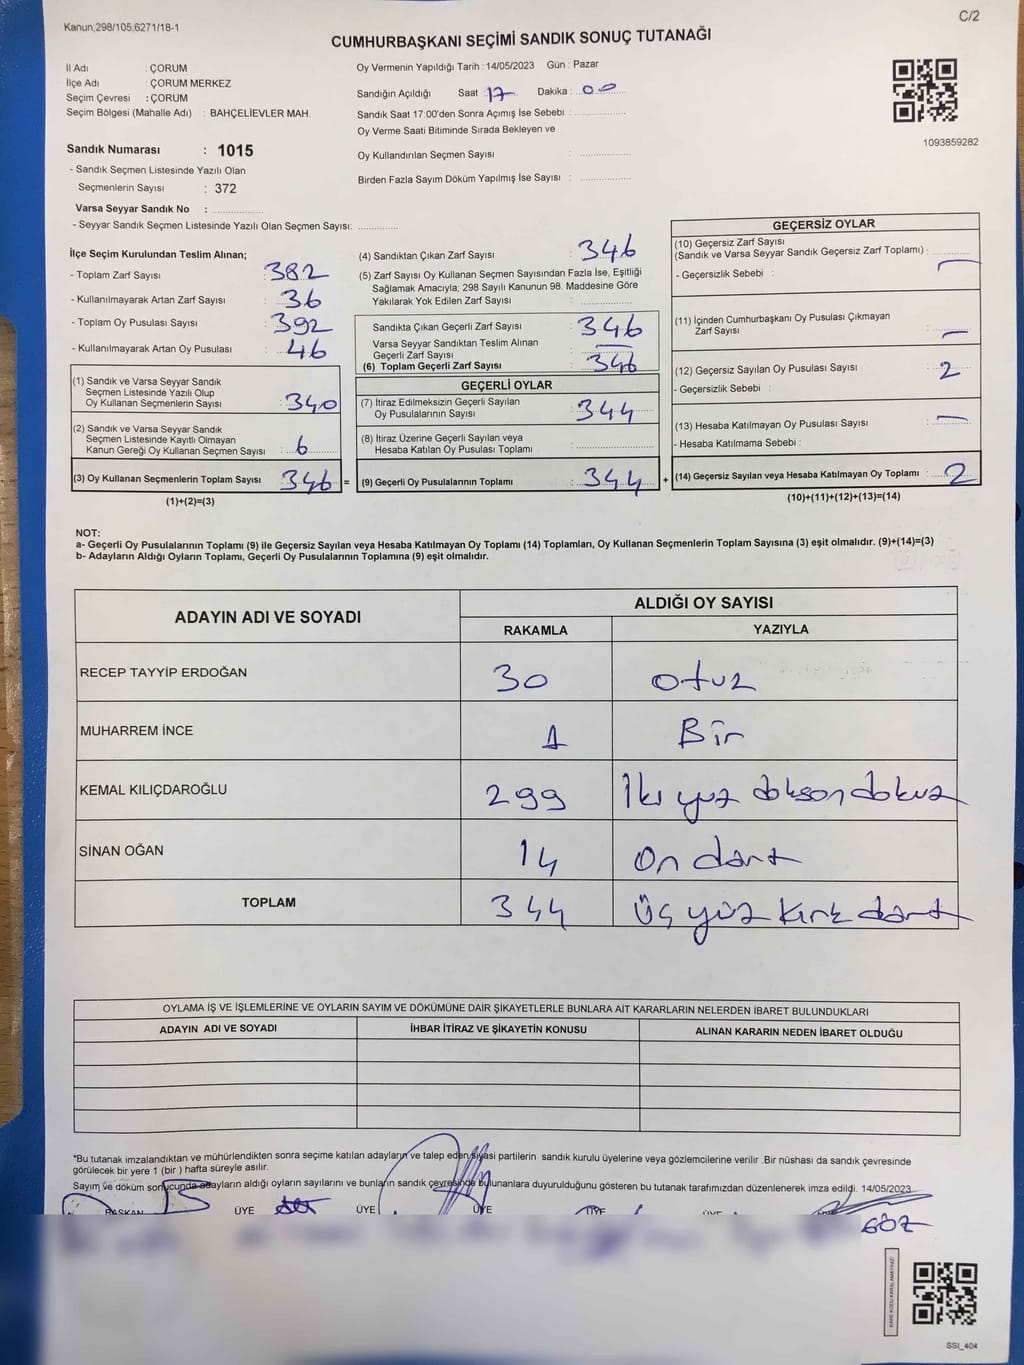 Kanun,298/105,6271/18-1
C/2
CUMHURBAŞKANI SEÇİMİ SANDIK SONUÇ TUTANAĞI
İl Adı : ÇORUM
İlçe Adı : ÇORUM MERKEZ
Seçim Çevresi : ÇORUM
Seçim Bölgesi (Mahalle Adı) : BAHÇELİEVLER MAH.
Sandık Numarası : 1015
- Sandık Seçmen Listesinde Yazılı Olan
Seçmenlerin Sayısı : 372
Varsa Seyyar Sandık No : ................
- Seyyar Sandık Seçmen Listesinde Yazılı Olan Seçmen Sayısı: ............
Oy Vermenin Yapıldığı Tarih : 14/05/2023 Gün : Pazar
Sandığın Açıldığı Saat : 17 Dakika : 00
Sandık Saat 17:00'den Sonra Açımış İse Sebebi : ................
Oy Verme Saati Bitiminde Sırada Bekleyen ve
Oy Kullandırılan Seçmen Sayısı : ................
Birden Fazla Sayım Döküm Yapılmış İse Sayısı : ................
1093859282
İlçe Seçim Kurulundan Teslim Alınan;
- Toplam Zarf Sayısı : 382
- Kullanılmayarak Artan Zarf Sayısı : 36
- Toplam Oy Pusulası Sayısı : 392
- Kullanılmayarak Artan Oy Pusulası : 46
(1) Sandık ve Varsa Seyyar Sandık
Seçmen Listesinde Yazılı Olup
Oy Kullanan Seçmenlerin Sayısı : 340
(2) Sandık ve Varsa Seyyar Sandık
Seçmen Listesinde Kayıtlı Olmayan
Kanun Gereği Oy Kullanan Seçmen Sayısı : 6
(3) Oy Kullanan Seçmenlerin Toplam Sayısı : 346 =
(1)+(2)=(3)
(4) Sandıktan Çıkan Zarf Sayısı : 346
(5) Zarf Sayısı Oy Kullanan Seçmen Sayısından Fazla İse, Eşitliği
Sağlamak Amacıyla; 298 Sayılı Kanunun 98. Maddesine Göre
Yakılarak Yok Edilen Zarf Sayısı : ................
Sandıkta Çıkan Geçerli Zarf Sayısı : 346
Varsa Seyyar Sandıktan Teslim Alınan
Geçerli Zarf Sayısı : —
(6) Toplam Geçerli Zarf Sayısı : 346
GEÇERLİ OYLAR
(7) İtiraz Edilmeksizin Geçerli Sayılan
Oy Pusulalarının Sayısı : 344
(8) İtiraz Üzerine Geçerli Sayılan veya
Hesaba Katılan Oy Pusulası Toplamı : ................
(9) Geçerli Oy Pusulalarının Toplamı : 344 +
GEÇERSİZ OYLAR
(10) Geçersiz Zarf Sayısı
(Sandık ve Varsa Seyyar Sandık Geçersiz Zarf Toplamı) : —
- Geçersizlik Sebebi :
(11) İçinden Cumhurbaşkanı Oy Pusulası Çıkmayan
Zarf Sayısı : —
(12) Geçersiz Sayılan Oy Pusulası Sayısı : 2
- Geçersizlik Sebebi :
(13) Hesaba Katılmayan Oy Pusulası Sayısı : —
- Hesaba Katılmama Sebebi :
(14) Geçersiz Sayılan veya Hesaba Katılmayan Oy Toplamı : 2
(10)+(11)+(12)+(13)=(14)
NOT:
a- Geçerli Oy Pusulalarının Toplamı (9) ile Geçersiz Sayılan veya Hesaba Katılmayan Oy Toplamı (14) Toplamları, Oy Kullanan Seçmenlerin Toplam Sayısına (3) eşit olmalıdır. (9)+(14)=(3)
b- Adayların Aldığı Oyların Toplamı, Geçerli Oy Pusulalarının Toplamına (9) eşit olmalıdır.
ADAYIN ADI VE SOYADI ALDIĞI OY SAYISI
RAKAMLA YAZIYLA
RECEP TAYYİP ERDOĞAN 30 otuz
MUHARREM İNCE 1 Bir
KEMAL KILIÇDAROĞLU 299 İki yüz doksan dokuz
SİNAN OĞAN 14 On dört
TOPLAM 344 Üç yüz kırk dört
OYLAMA İŞ VE İŞLEMLERİNE VE OYLARIN SAYIM VE DÖKÜMÜNE DAİR ŞİKAYETLERLE BUNLARA AİT KARARLARIN NELERDEN İBARET BULUNDUKLARI
ADAYIN ADI VE SOYADI İHBAR İTİRAZ VE ŞİKAYETİN KONUSU ALINAN KARARIN NEDEN İBARET OLDUĞU
*Bu tutanak imzalandıktan ve mühürlendikten sonra seçime katılan adayların ve talep eden siyasi partilerin sandık kurulu üyelerine veya gözlemcilerine verilir .Bir nüshası da sandık çevresinde
görülecek bir yere 1 (bir ) hafta süreyle asılır.
Sayım ve döküm sonucunda adayların aldığı oyların sayılarını ve bunların sandık çevresinde bulunanlara duyurulduğunu gösteren bu tutanak tarafımızdan düzenlenerek imza edildi. 14/05/2023
BAŞKAN ÜYE ÜYE ÜYE ÜYE ÜYE
GÖZ
SSI_404